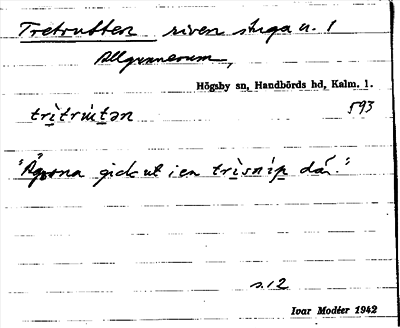 Tretrutten riven stuga u. 1
Allgunnerum,
Högsby sn, Handbörds hd, Kalm. l.
trìtrútən 593
gick ut i en trìsníp där."
s. 12
Ivar Modéer 1942